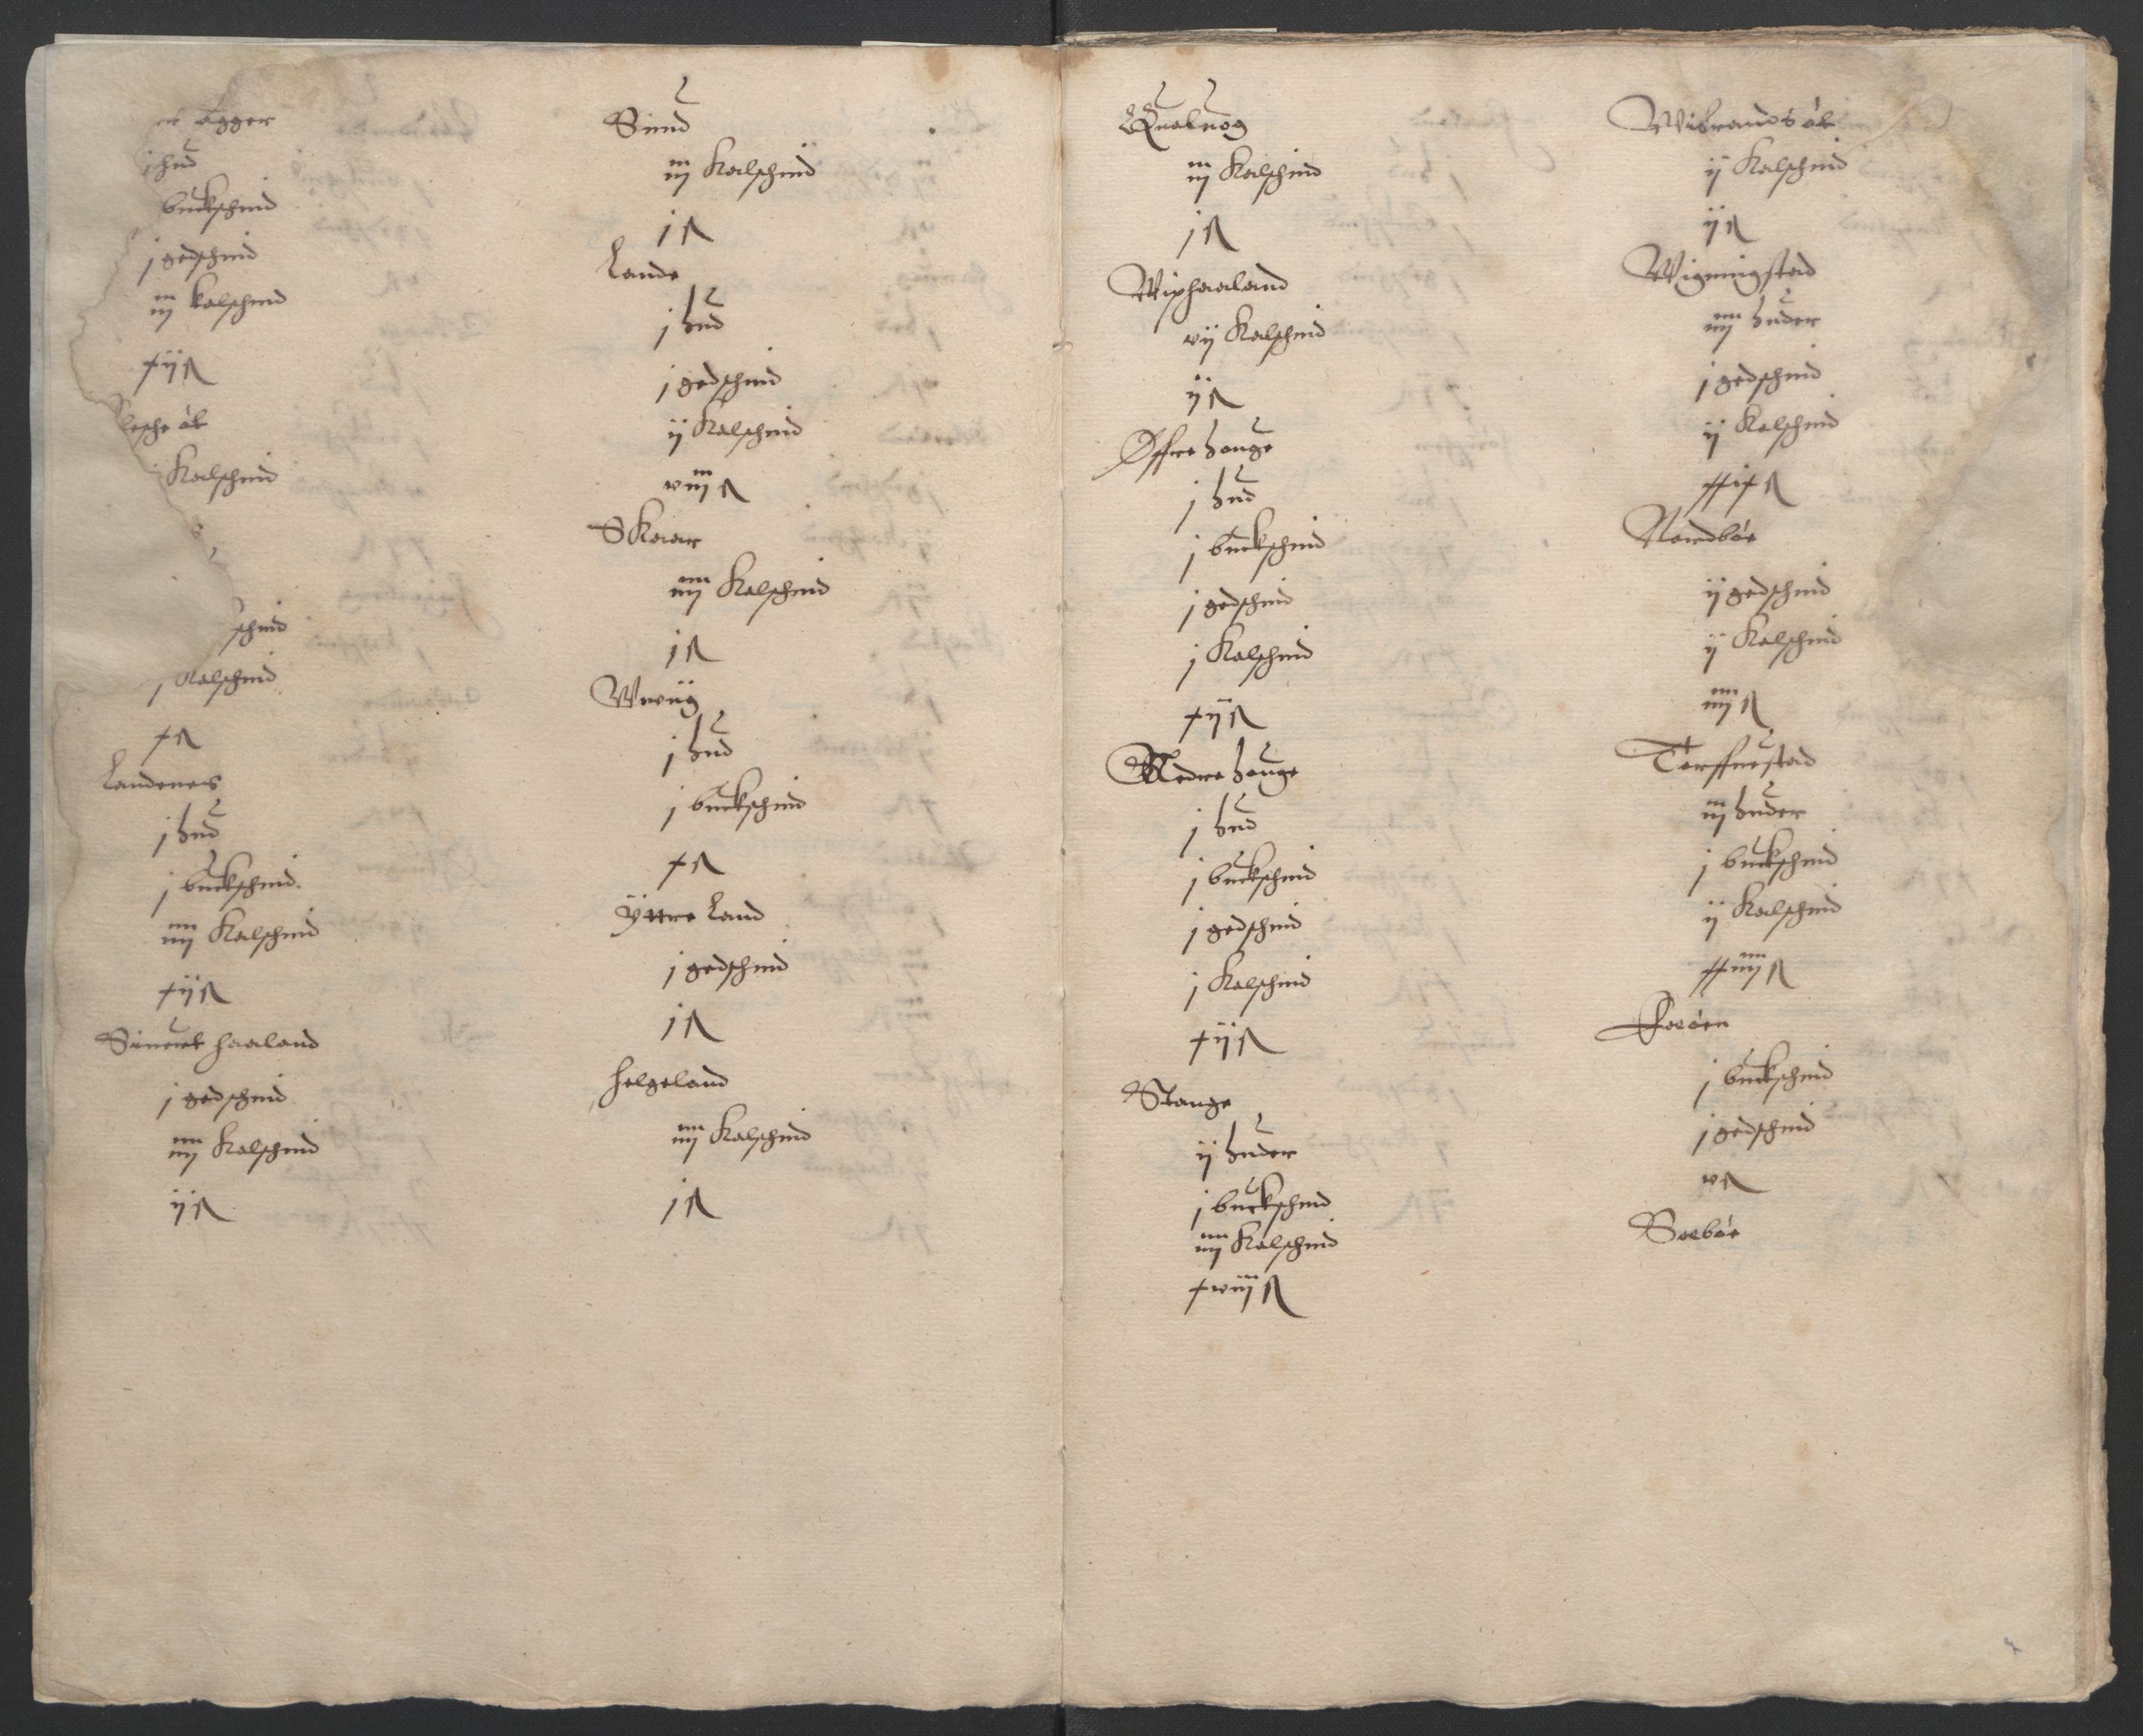 er Egger
j hud
buckschind
j gedschind
iij kalschind
xij ß
Kalschind
schind
j Kalschind
x ß
Landenes
j hud
j buckschind
iiij Kalschind
xij ß
Sinert haaland
j gedschind
iiij Kalschind
ij ß
Sund
iij Kalschind
j ß
Lande
j hud
j gedschind
ij Kalschind
viij ß
Skaar
iiij Kalschind
j ß
j hud
j buckschind
x ß
Yttre Land
j gedschind
j ß
helgeland
iiij Kalschind
j ß
Qualuog
iij Kalschind
j ß
Wixhaaland
vij Kalschind
ij ß
Øffre houge
j hud
j buckschind
j gedschind
j Kalschind
xij ß
Nedre houge
j hud
j buckschind
j gedschind
j Kalschind
xij ß
Stange
ij huder
j buckschind
iiij Kalschind
xviij ß
Wibrandsøt
ij Kalschind
ij ß
Wigningstad
iiij huder
j gedschind
ij Kalschind
xxix ß
Nordbøe
ij gedschind
ij Kalschind
iiij ß
Torffuestad
iij huder
j buckschind
ij Kalschind
xxiiij ß
j buckschind
j gedschind
v ß
Soebøe